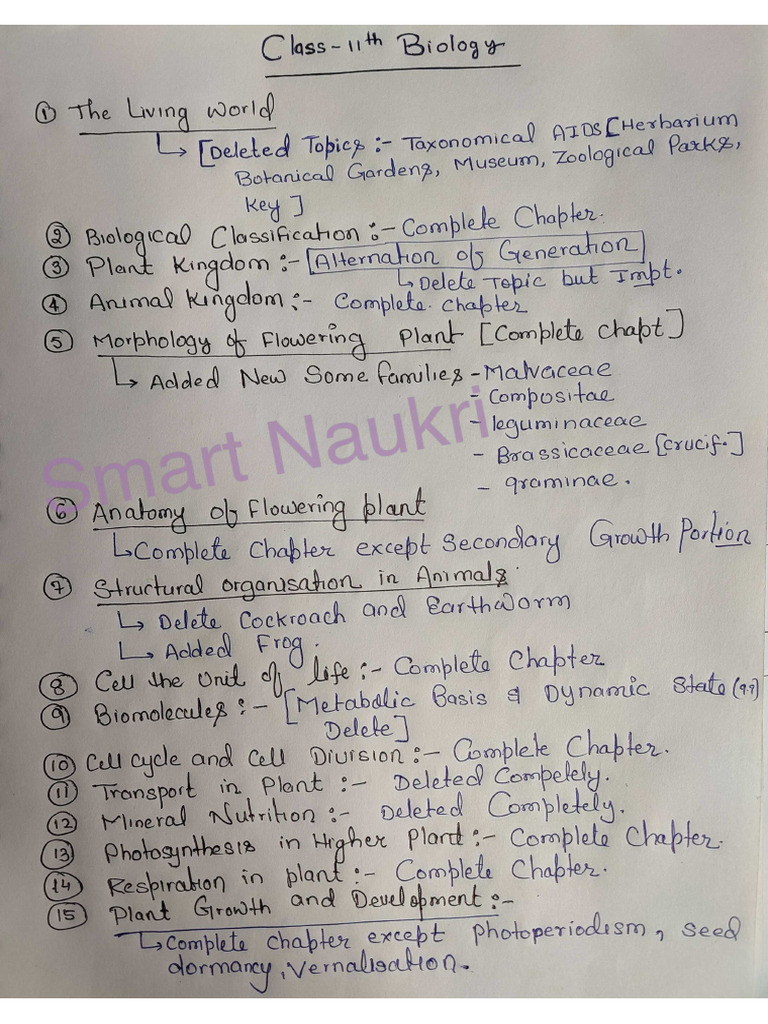 Class-11th Biology
① The Living World
↳ [Deleted Topics :- Taxonomical AIDS [Herbarium
Botanical Gardens, Museum, Zoological Parks,
Key]
② Biological Classification :- Complete Chapter.
③ Plant Kingdom :- [Alternation of Generation]
↳ Delete Topic but Impt.
④ Animal Kingdom :- Complete chapter
⑤ Morphology of Flowering Plant [Complete chapt]
↳ Added New Some families - Malvaceae
- Compositae
- leguminaceae
- Brassicaceae [crucif.]
- graminae.
Smart Naukri
⑥ Anatomy of Flowering plant
↳ Complete Chapter except Secondary Growth Portion
⑦ Structural organisation in Animals
↳ Delete Cockroach and Earthworm
↳ Added Frog.
⑧ Cell the Unit of life :- Complete Chapter
⑨ Biomolecules :- [Metabolic Basis & Dynamic State (9.9)
Delete]
⑩ Cell cycle and cell Division :- Complete Chapter.
⑪ Transport in Plant :- Deleted Competely.
⑫ Mineral Nutrition :- Deleted Completely.
⑬ Photosynthesis in Higher Plant :- Complete Chapter.
⑭ Respiration in plant :- Complete Chapter.
⑮ Plant Growth and Development :-
↳ Complete chapter except photoperiodism, seed
dormancy, Vernalisation.